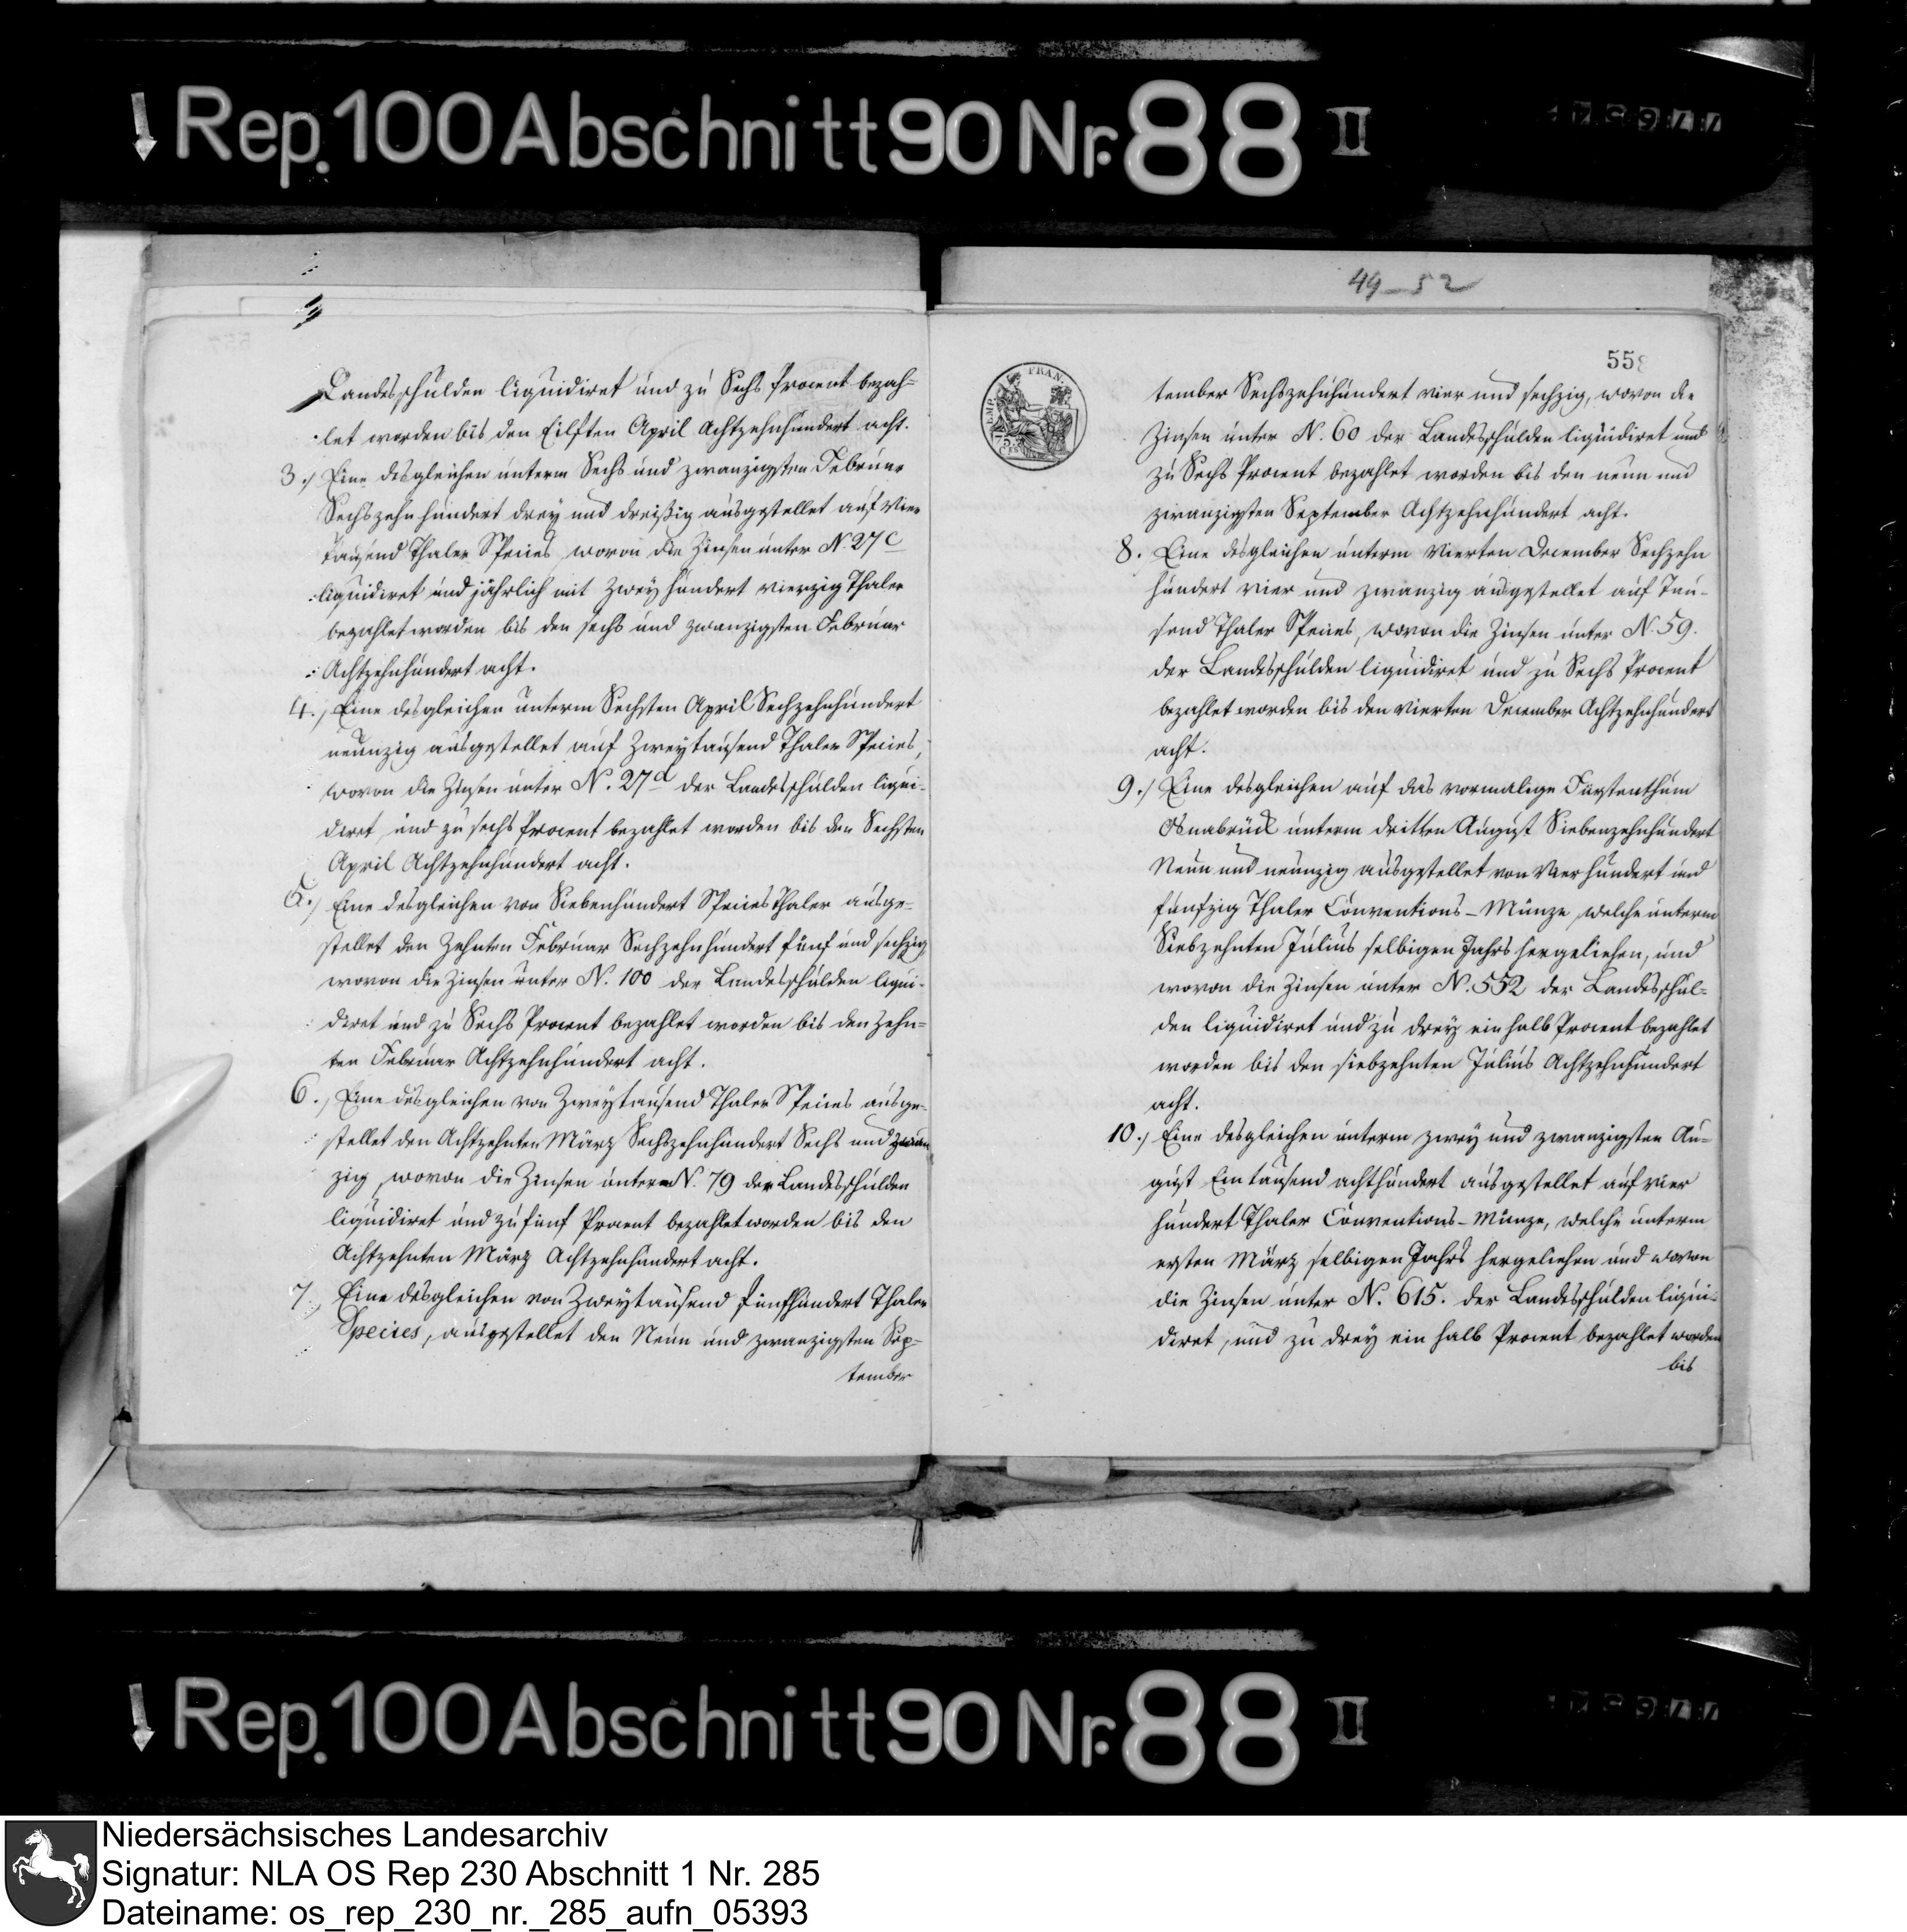 Rep. 100 Abschnitt 90 Nr. 88 II
49-52
Landesschulden liquidiret und zu Sechs Procent bezah=
let worden bis den Eilften April Achtzehnhundert acht.
3.) Eine desgleichen unterm Sechs und zwanzigsten Februar
Sechszehn hundert drey und dreißig ausgestellet auf Vier
tausend Thaler Species, wovon die Zinsen unter N. 27c
liquidiret und jährlich mit Zwey hundert vierzig Thaler
bezahlet worden bis den sechs und zwanzigsten Februar
Achtzehnhundert acht.
4.) Eine desgleichen unterm Sechsten April Sechzehnhundert
neunzig ausgestellet auf Zweytausend Thaler Species,
wovon die Zinsen unter N. 27d der Landesschulden liqui-
diret und zu sechs Procent bezahlet worden bis den Sechsten
April Achtzehnhundert acht.
5.) Eine desgleichen von Siebenhundert Species Thaler ausge-
stellet den Zehnten Februar Sechzehnhundert fünf und sechzig,
wovon die Zinsen unter N. 100 der Landesschulden liqui-
diret und zu Sechs Procent bezahlet worden bis den Zehn=
ten Februar Achtzehnhundert acht.
6.) Eine desgleichen von Zweytausend Thaler Species ausge-
stellet den Achtzehnten März Sechszehnhundert Sechs und zwan
zig, wovon die Zinsen unter N. 79 der Landesschulden
liquidiret und zu fünf Procent bezahlet worden bis den
Achtzehnten März Achtzehnhundert acht.
7. Eine desgleichen von Zweytausend fünfhundert Thaler
Species, ausgestellet den Neun und zwanzigsten Sep-
tember
558
EMP. FRAN.
tember Sechszehnhundert vier und sechzig, wovon die
Zinsen unter N. 60 der Landesschulden liquidiret und
zu Sechs Procent bezahlet worden bis den neun und
zwanzigsten September Achtzehnhundert acht.
8. Eine desgleichen unterm Vierten December Sechzehn
hundert vier und zwanzig ausgestellet auf Tau-
send Thaler Species, wovon die Zinsen unter N. 59.
der Landesschulden liquidiret und zu Sechs Procent
bezahlet worden bis den Vierten December Achtzehnhundert
acht.
9.) Eine desgleichen auf das vormalige Fürstenthum
Osnabrück unterm dritten August Siebenzehnhundert
Neun und neunzig ausgestellet von Vier hundert und
fünfzig Thaler Conventions-Münze, welche unterm
Siebzehnten Julius selbigen Jahrs hergeliehen, und
wovon die Zinsen unter N. 552 der Landesschul=
den liquidiret und zu drey ein halb Procent bezahlet
worden bis den siebzehnten Julius Achtzehnhundert
acht.
10.) Eine desgleichen unterm zwey und zwanzigsten Au=
gust Ein tausend achthundert ausgestellet auf vier
hundert Thaler Conventions-Münze, welche unterm
ersten März selbigen Jahrs hergeliehen und wovon
die Zinsen unter N. 615. der Landesschulden liqui-
diret, und zu drey ein halb Procent bezahlet worden
bis
Rep. 100 Abschnitt 90 Nr. 88 II
Niedersächsisches Landesarchiv
Signatur: NLA OS Rep 230 Abschnitt 1 Nr. 285
Dateiname: os_rep_230_nr._285_aufn_05393